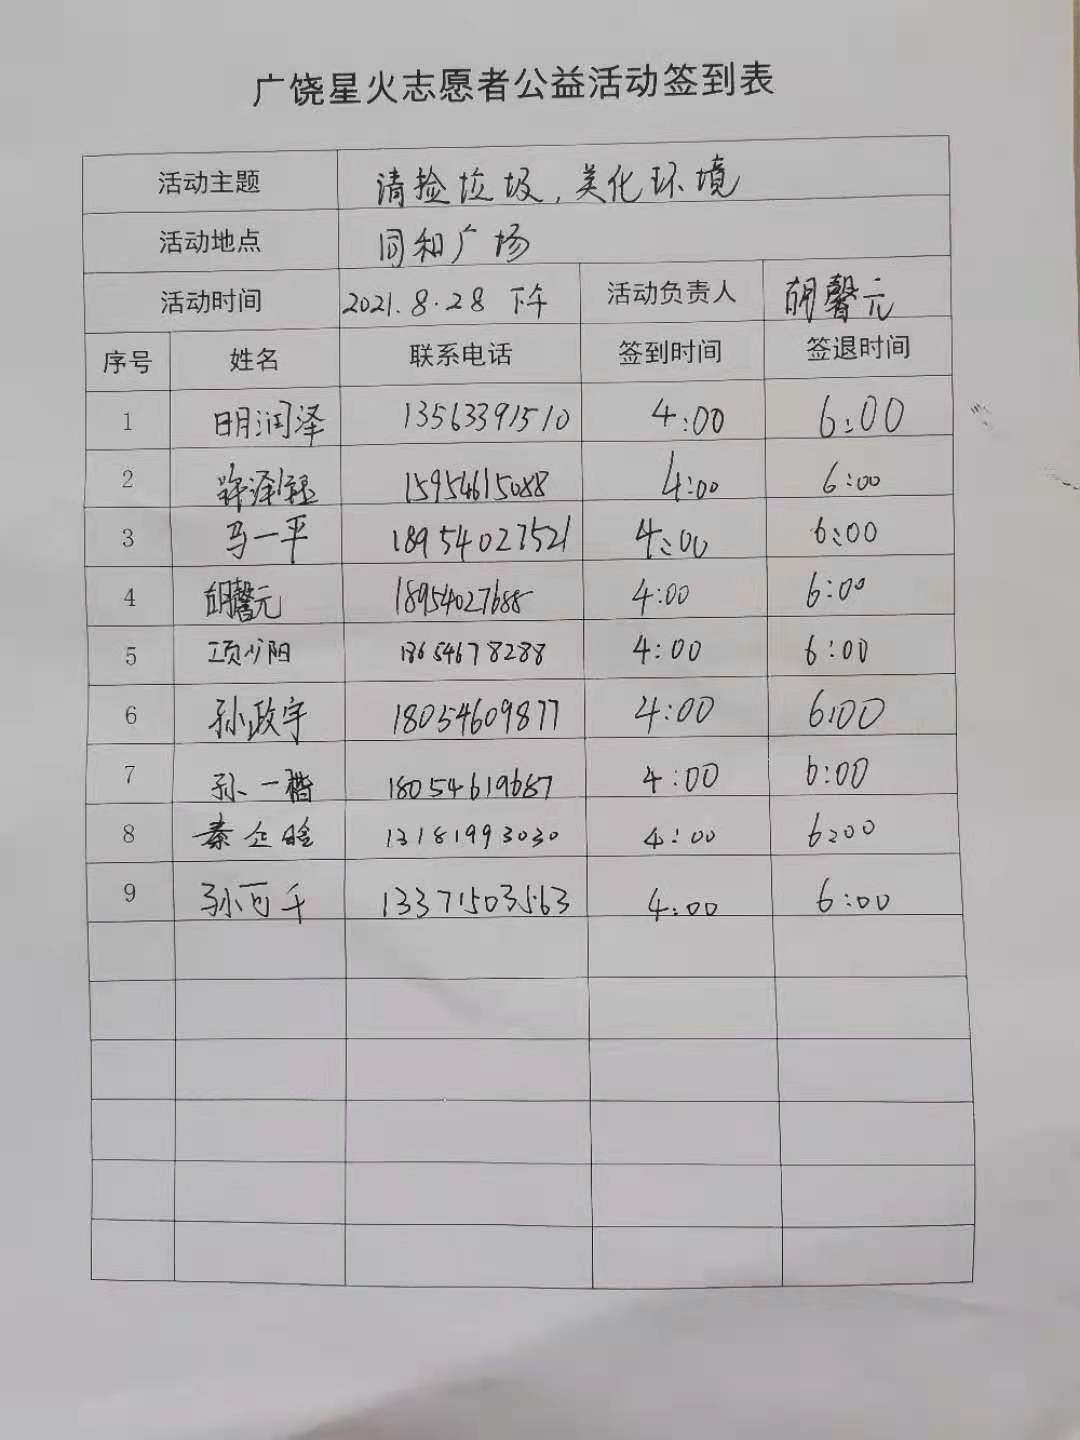 广饶星火志愿者公益活动签到表
活动主题 清捡垃圾,美化环境
活动地点 同和广场
活动时间 2021.8.28 下午 活动负责人 胡馨元
序号 姓名 联系电话 签到时间 签退时间
1 明润泽 13563391510 4:00 6:00
2 许泽钰 15954615088 4:00 6:00
3 马一平 18954027521 4:00 6:00
4 胡馨元 18954027688 4:00 6:00
5 项少阳 18654678288 4:00 6:00
6 孙政宇 18054609877 4:00 6:00
7 孙一楷 18054619687 4:00 6:00
8 秦 13181993030 4:00 6:00
9 孙可千 13371503563 4:00 6:00